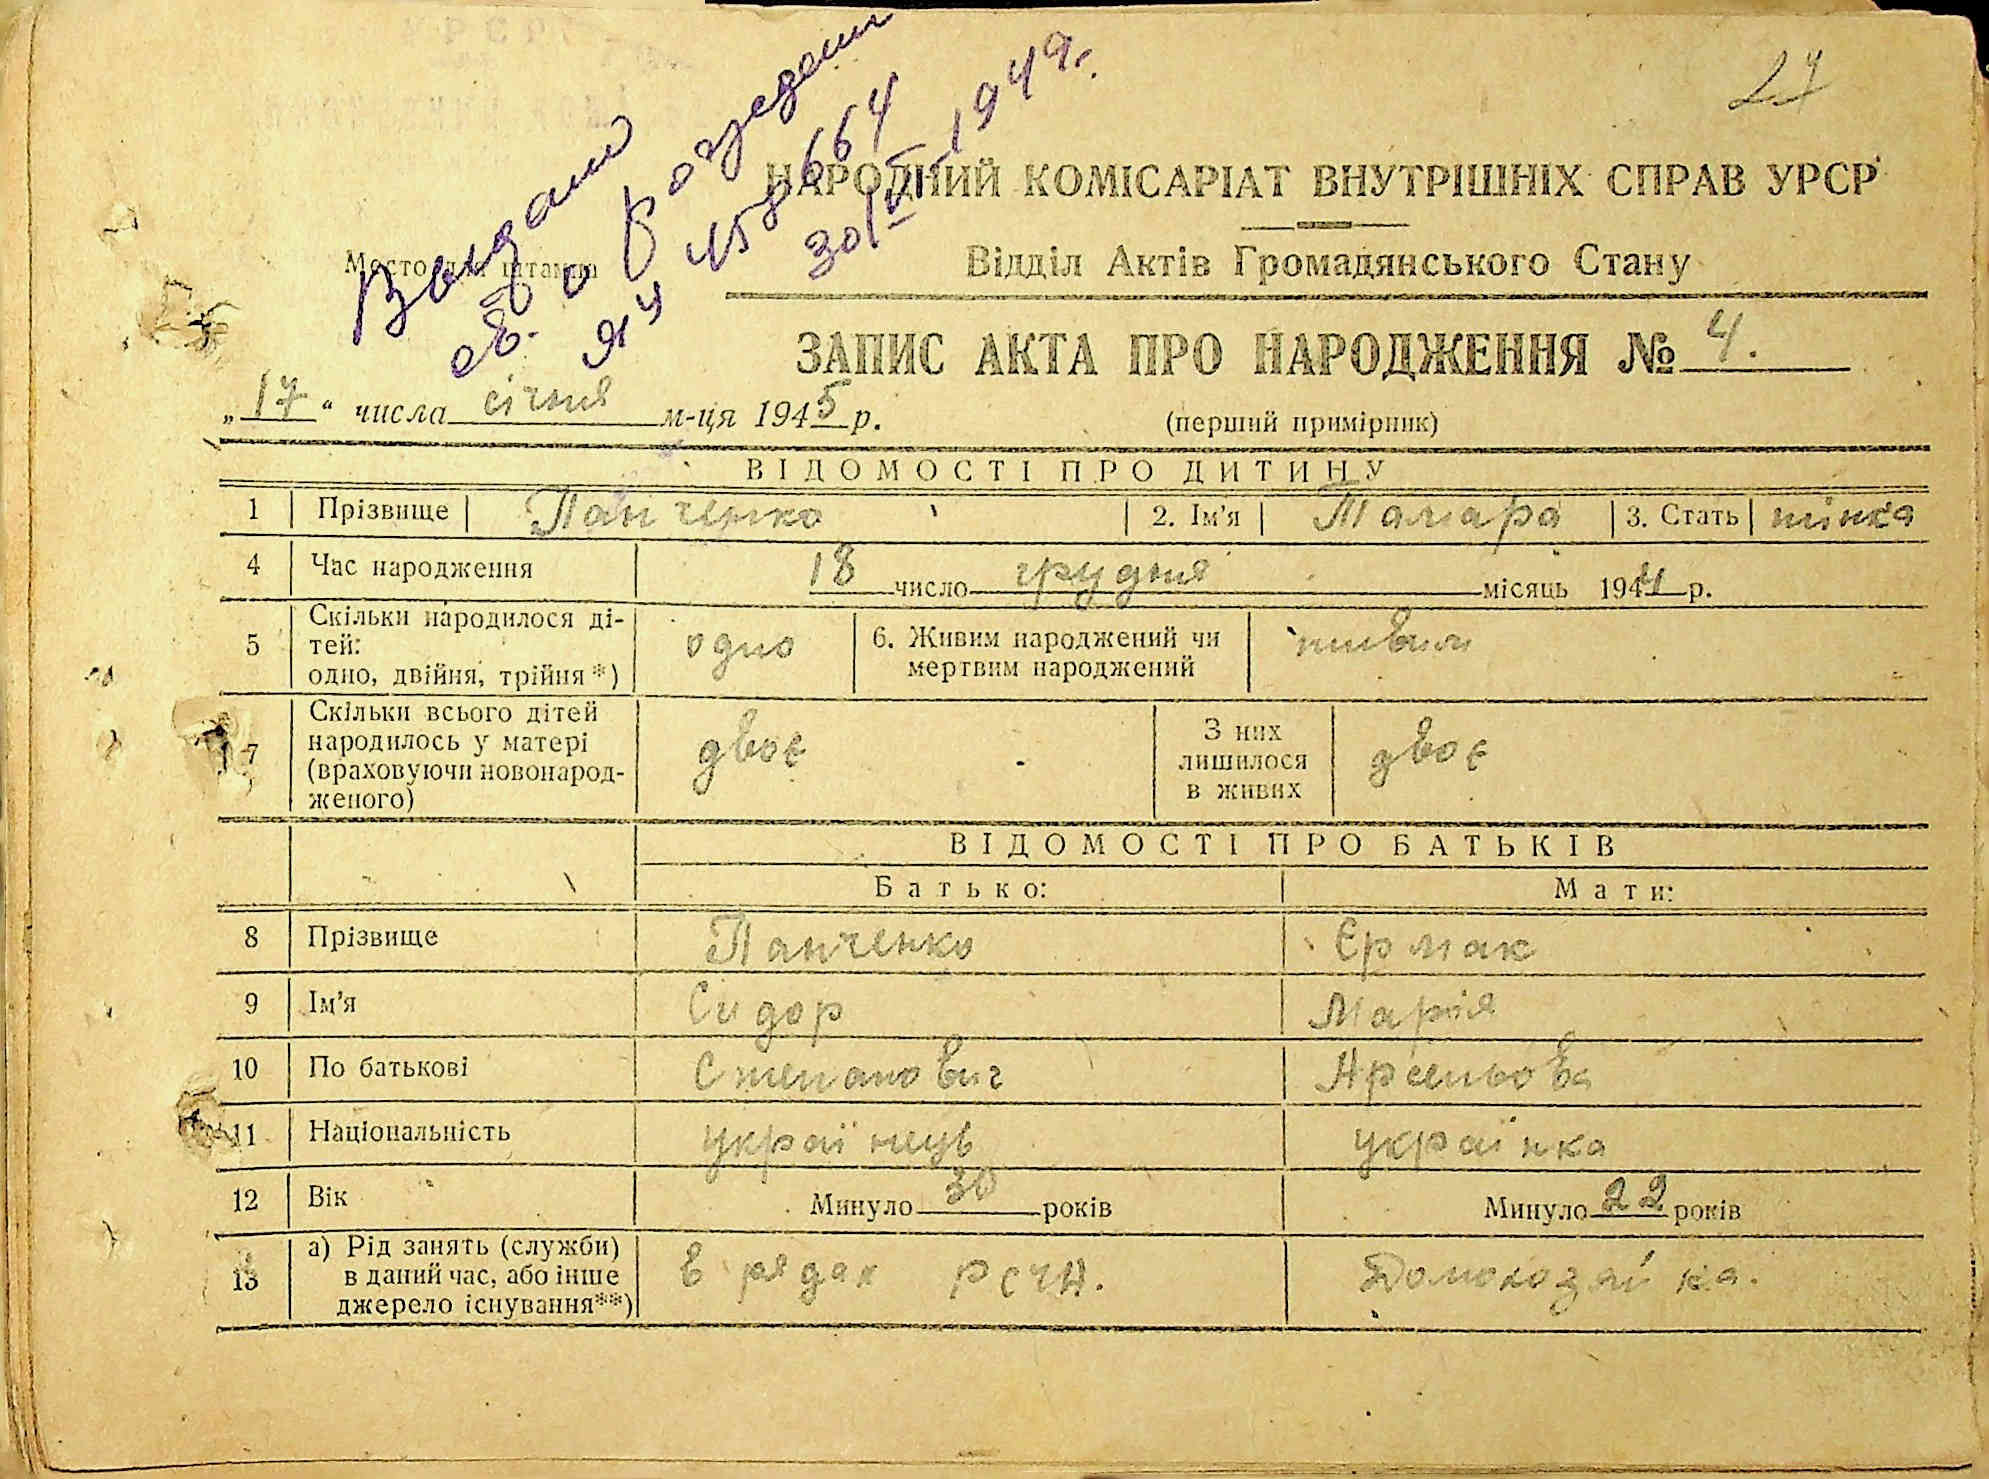 27
Выдано
св. о рождении
ЯЧ 458664
30/VI-1949г.
НАРОДНИЙ КОМІСАРІАТ ВНУТРІШНІХ СПРАВ УРСР
Место для штампа
Відділ Актів Громадянського Стану
ЗАПИС АКТА ПРО НАРОДЖЕННЯ № 4.
„17“ числа січня м-ця 1945 р. (перший примірник)
ВІДОМОСТІ ПРО ДИТИНУ
1 Прізвище Панченко 2. Ім'я Тамара 3. Стать жінка
4 Час народження 18 число грудня місяць 1944 р.
5 Скільки народилося ді-
тей:
одно, двійня, трійня*) одно 6. Живим народжений чи
мертвим народжений живим
7 Скільки всього дітей
народилось у матері
(враховуючи новонарод-
женого) двоє З них
лишилося
в живих двоє
ВІДОМОСТІ ПРО БАТЬКІВ
Батько: Мати:
8 Прізвище Панченко Єрмак
9 Ім'я Сидор Марія
10 По батькові Степанович Арсеньова
11 Національність українець українка
12 Вік Минуло 30 років Минуло 22 років
13 а) Рід занять (служби)
в даний час, або інше
джерело існування**) в рядах РСЧА. Домохозяйка.